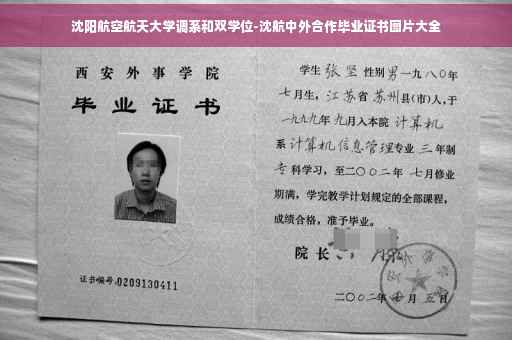 沈阳航空航天大学调系和双学位-沈航中外合作毕业证书图片大全
西安外事学院
毕业证书
证书编号:0209130411
学生 张坚 性别 男 一九八〇年
七月生, 江苏省 苏州县(市)人,于
一九九九年 九月入本院 计算机
系 计算机信息管理专业 三 年制
专 科学习, 至二〇〇二年 七月修业
期满, 学完教学计划规定的全部课程,
成绩合格, 准予毕业。
院长
二〇〇二年 七 月 五 日